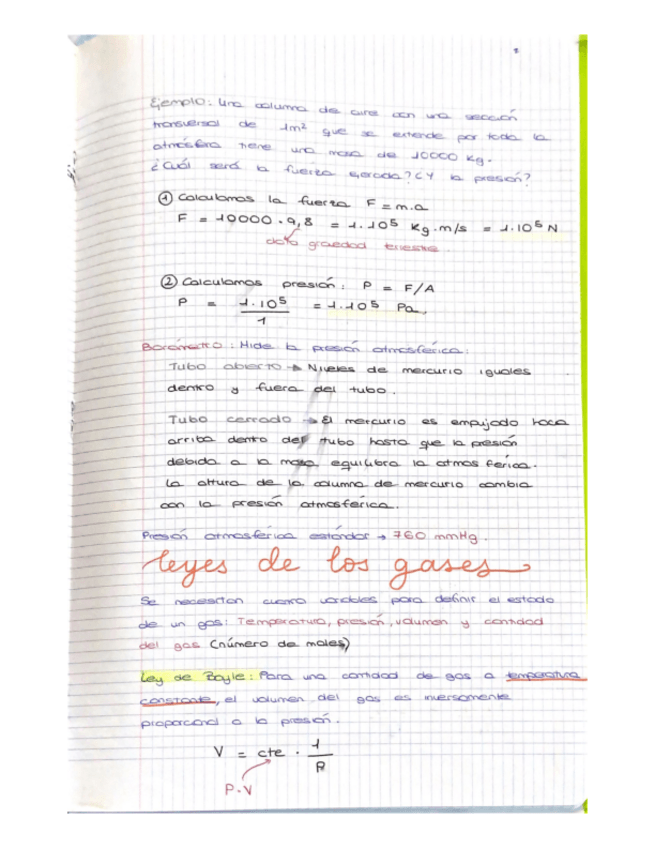 Ejemplo: Una columna de aire con una sección
transversal de 1m² que se extiende por toda la
atmósfera tiene una masa de 10000 Kg.
¿Cuál será la fuerza ejercida? ¿Y la presión?
① Calculamos la fuerza F = m.a
F = 10000 · 9,8 = 1.10⁵ Kg.m/s = 1.10⁵ N
dato gravedad terrestre.
② Calculamos presión: P = F/A
P = 1.10⁵ / 1 = 1.10⁵ Pa.
Barómetro: Mide la presión atmosférica:
Tubo abierto → Niveles de mercurio iguales
dentro y fuera del tubo.
Tubo cerrado → El mercurio es empujado hacia
arriba dentro del tubo hasta que la presión
debida a la masa equilibra la atmosférica.
La altura de la columna de mercurio cambia
con la presión atmosférica.
Presión atmosférica estándar → 760 mmHg.
Leyes de los gases
Se necesitan cuatro variables para definir el estado
de un gas: Temperatura, presión, volumen y cantidad
del gas (número de moles)
Ley de Boyle: Para una cantidad de gas a temperatura
constante, el volumen del gas es inversamente
proporcional a la presión.
V = cte · 1/P
P.V